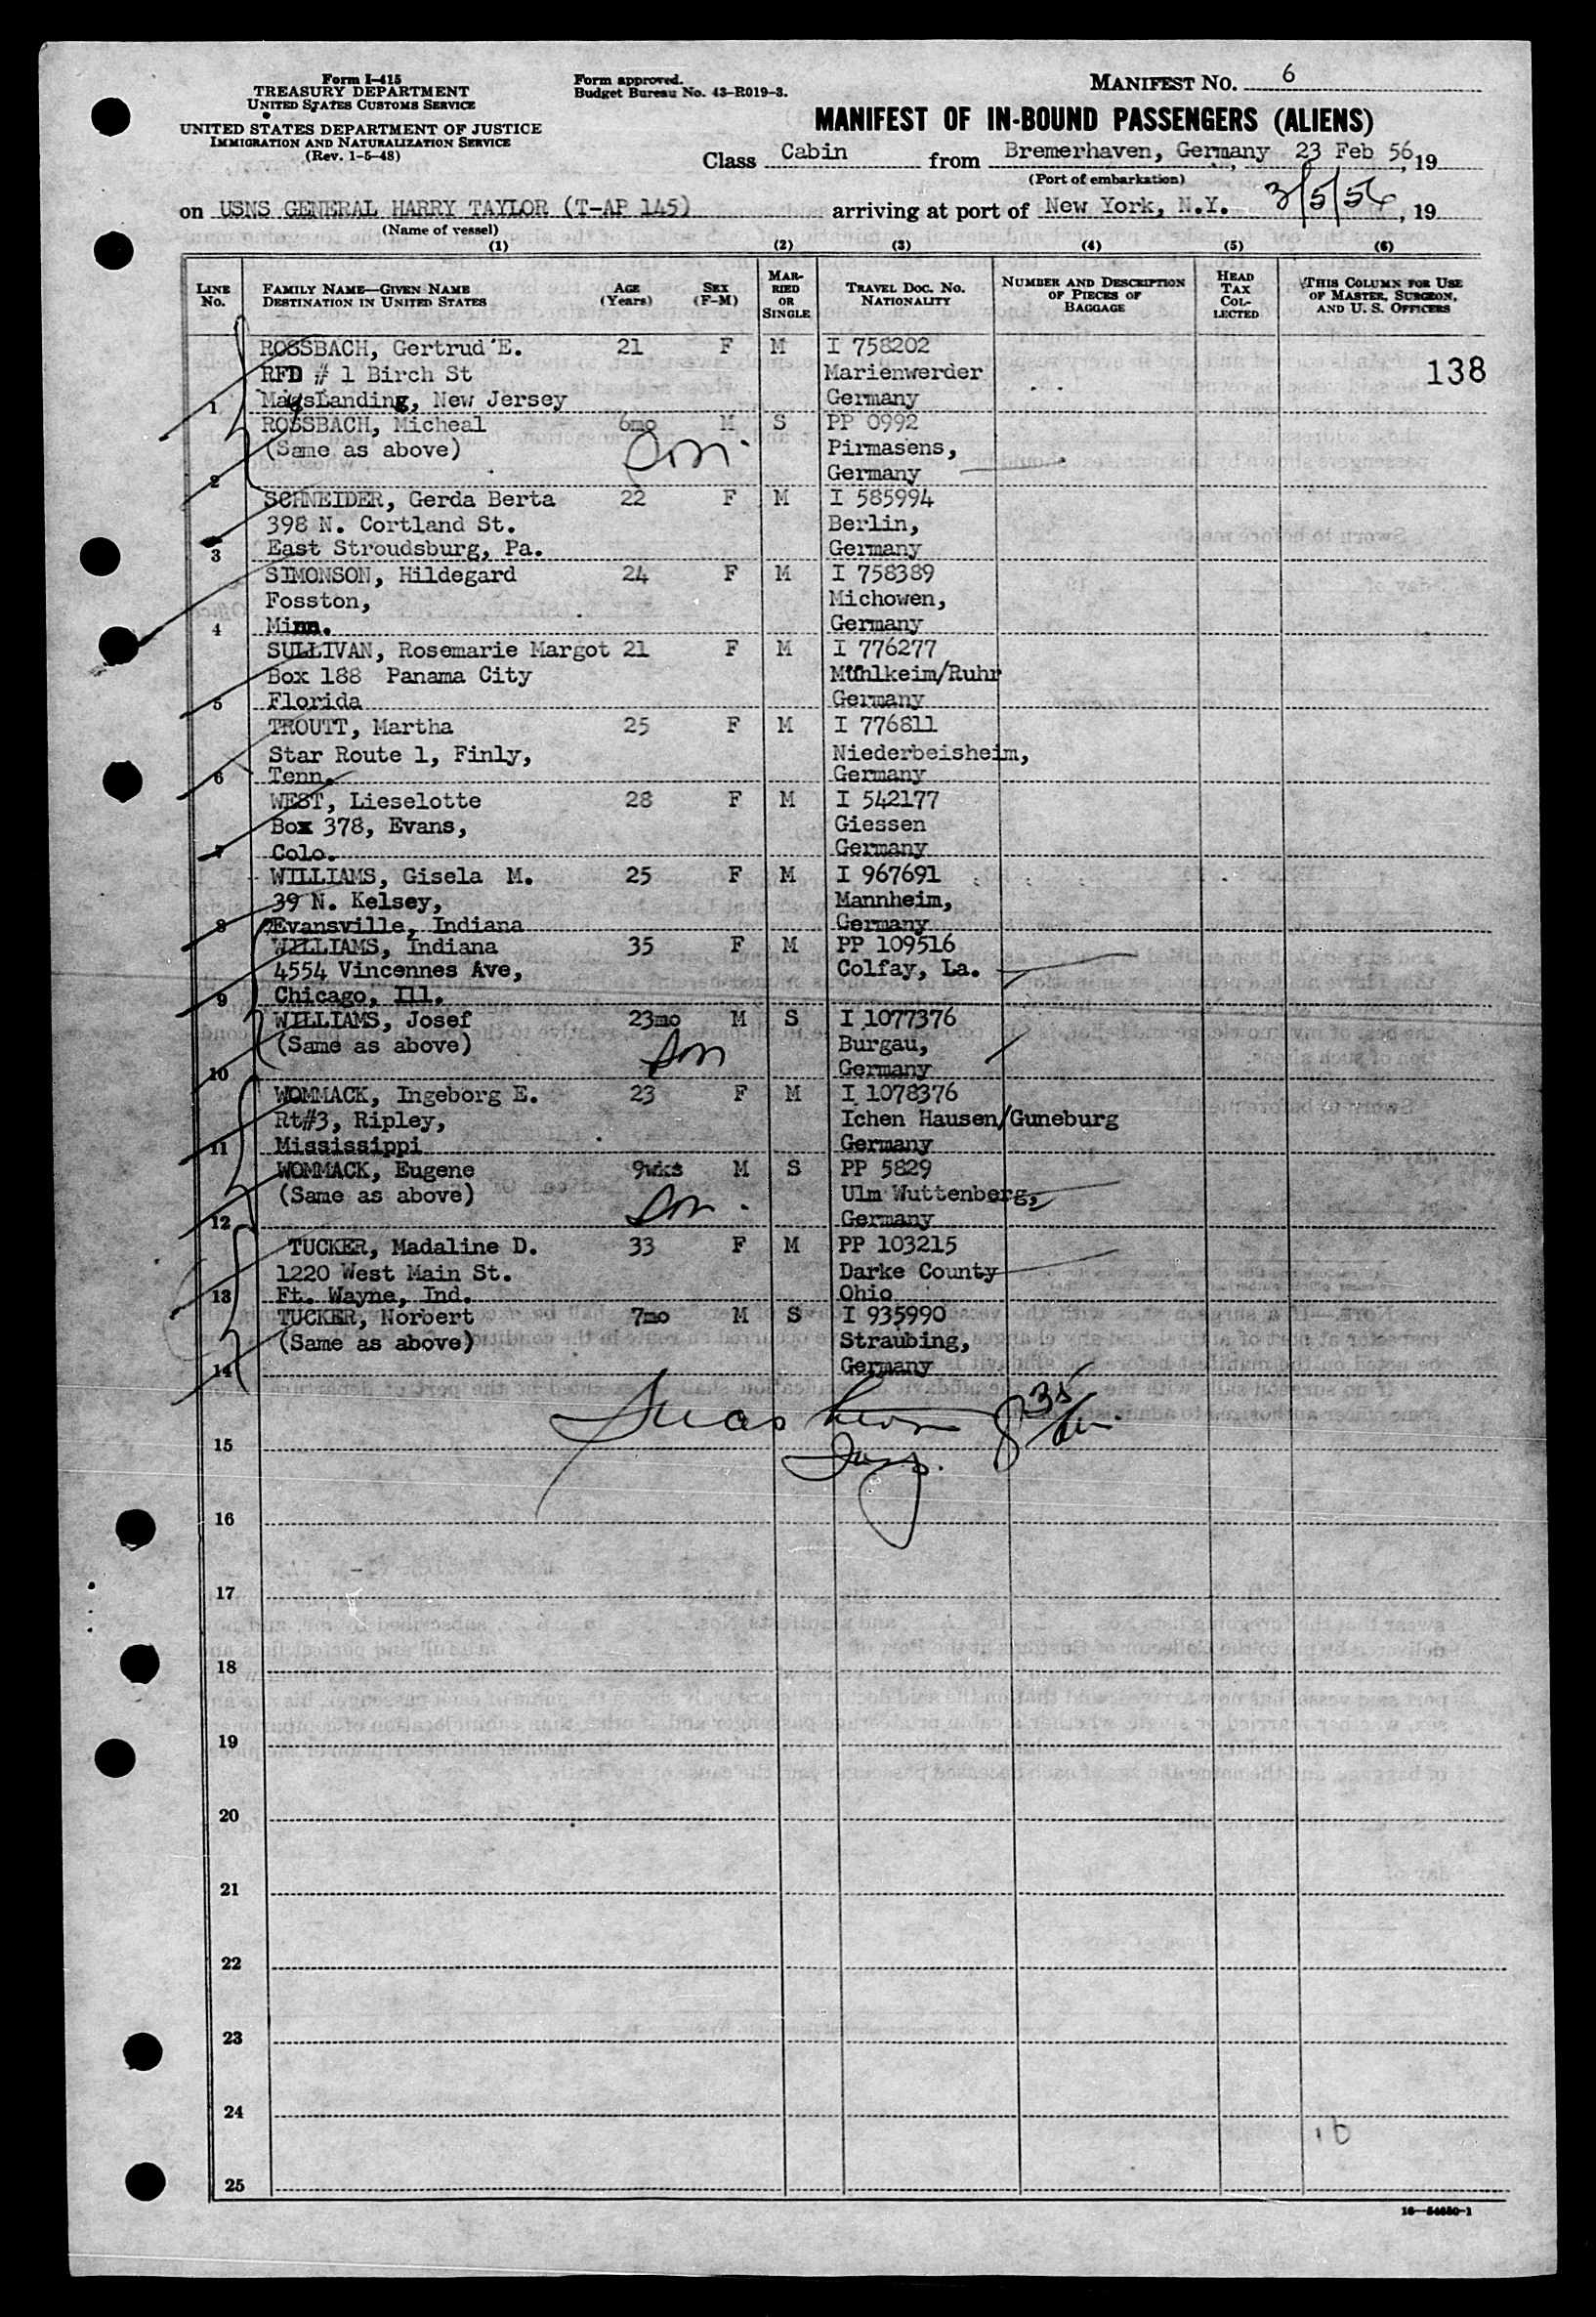 Form I-415
TREASURY DEPARTMENT
UNITED STATES CUSTOMS SERVICE
UNITED STATES DEPARTMENT OF JUSTICE
IMMIGRATION AND NATURALIZATION SERVICE
(Rev. 1-5-48)
Form approved.
Budget Bureau No. 43-R019-3.
MANIFEST NO. 6
MANIFEST OF IN-BOUND PASSENGERS (ALIENS)
Class Cabin from Bremerhaven, Germany, 23 Feb 56, 19
(Port of embarkation)
on USNS GENERAL HARRY TAYLOR (T-AP 145) arriving at port of New York, N.Y. 3/5/56, 19
(Name of vessel)
(1) (2) (3) (4) (5) (6)
LINE No. FAMILY NAME—GIVEN NAME DESTINATION IN UNITED STATES AGE (Years) SEX (F-M) MARRIED OR SINGLE TRAVEL DOC. NO. NATIONALITY NUMBER AND DESCRIPTION OF PIECES OF BAGGAGE HEAD TAX COLLECTED THIS COLUMN FOR USE OF MASTER, SURGEON, AND U. S. OFFICERS
138
ROSSBACH, Gertrud E. 21 F M I 758202
RFD # 1 Birch St Marienwerder
1 MaysLanding, New Jersey Germany
ROSSBACH, Micheal 6mo M S PP 0992
(Same as above) son Pirmasens,
2 Germany
SCHNEIDER, Gerda Berta 22 F M I 585994
398 N. Cortland St. Berlin,
3 East Stroudsburg, Pa. Germany
SIMONSON, Hildegard 24 F M I 758389
Fosston, Michowen,
4 Minn. Germany
SULLIVAN, Rosemarie Margot 21 F M I 776277
Box 188 Panama City Muhlkeim/Ruhr
5 Florida Germany
TROUTT, Martha 25 F M I 776811
Star Route 1, Finly, Niederbeisheim,
6 Tenn. Germany
WEST, Lieselotte 28 F M I 542177
Box 378, Evans, Giessen
7 Colo. Germany
WILLIAMS, Gisela M. 25 F M I 967691
39 N. Kelsey, Mannheim,
8 Evansville, Indiana Germany
WILLIAMS, Indiana 35 F M PP 109516
4554 Vincennes Ave, Colfay, La.
9 Chicago, Ill.
WILLIAMS, Josef 23mo M S I 1077376
(Same as above) son Burgau,
10 Germany
WOMMACK, Ingeborg E. 23 F M I 1078376
Rt#3, Ripley, Ichen Hausen/Guneburg
11 Mississippi Germany
WOMMACK, Eugene 9wks M S PP 5829
(Same as above) son Ulm Wuttenberg,
12 Germany
TUCKER, Madaline D. 33 F M PP 103215
1220 West Main St. Darke County
13 Ft. Wayne, Ind. Ohio
TUCKER, Norbert 7mo M S I 935990
(Same as above) Straubing,
14 Germany
15
16
17
18
19
20
21
22
23
24
25
16—54650-1